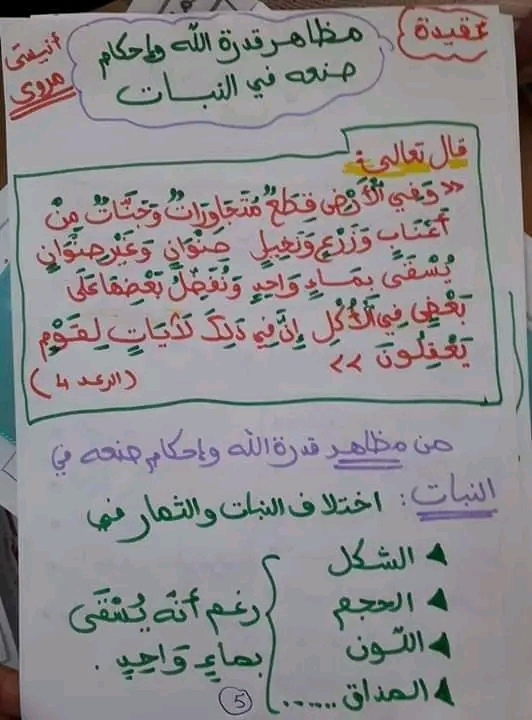 عقيدة
مظاهر قدرة الله وإحكام
صنعه في النبات
أنيستي
مروى
قال تعالى:
<< وَفِي الْأَرْضِ قِطَعٌ مُتَجَاوِرَاتٌ وَجَنَّاتٌ مِنْ
أَعْنَابٍ وَزَرْعٍ وَنَخِيلٍ صِنْوَانٍ وَغَيْرِ صِنْوَانٍ
يُسْقَى بِمَاءٍ وَاحِدٍ وَنُفَضِّلُ بَعْضَهَا عَلَى
بَعْضٍ فِي الْأُكُلِ إِنَّ فِي ذَلِكَ لَآيَاتٍ لِقَوْمٍ
يَعْقِلُونَ >>
(الرعد 4)
من مظاهر قدرة الله وإحكام صنعه في
النبات: اختلاف النبات والثمار في
الشكل
الحجم
اللّون
المذاق ......
رغم أنّه يُسْقَى
بِمَاءٍ وَاحِدٍ .
5